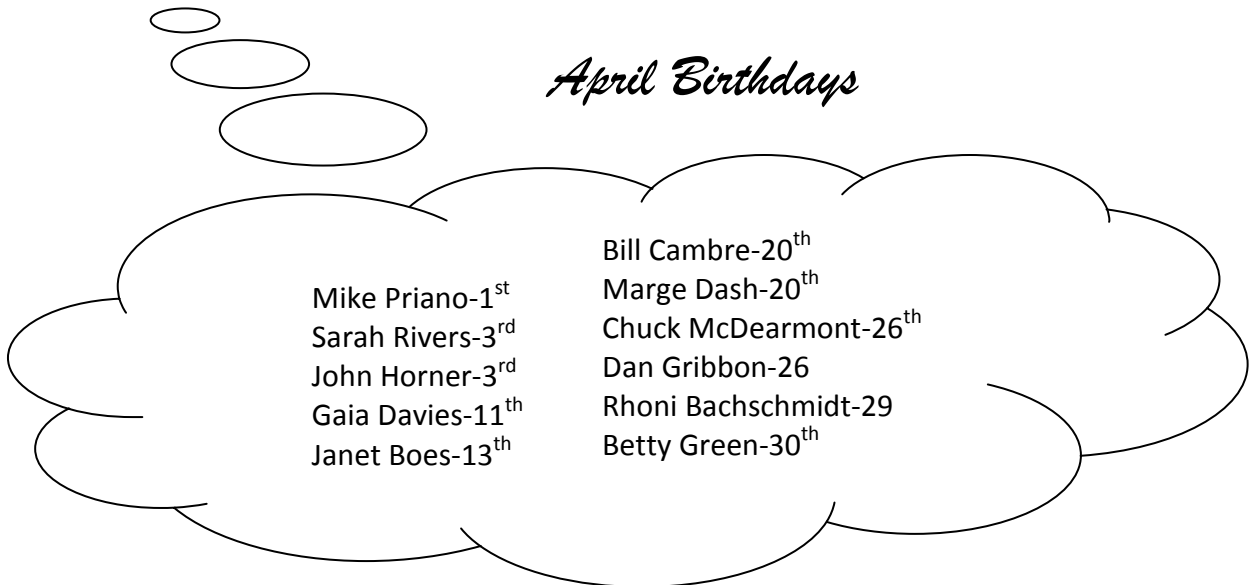 April Birthdays
Mike Priano-1st
Sarah Rivers-3rd
John Horner-3rd
Gaia Davies-11th
Janet Boes-13th
Bill Cambre-20th
Marge Dash-20th
Chuck McDearmont-26th
Dan Gribbon-26
Rhoni Bachschmidt-29
Betty Green-30th